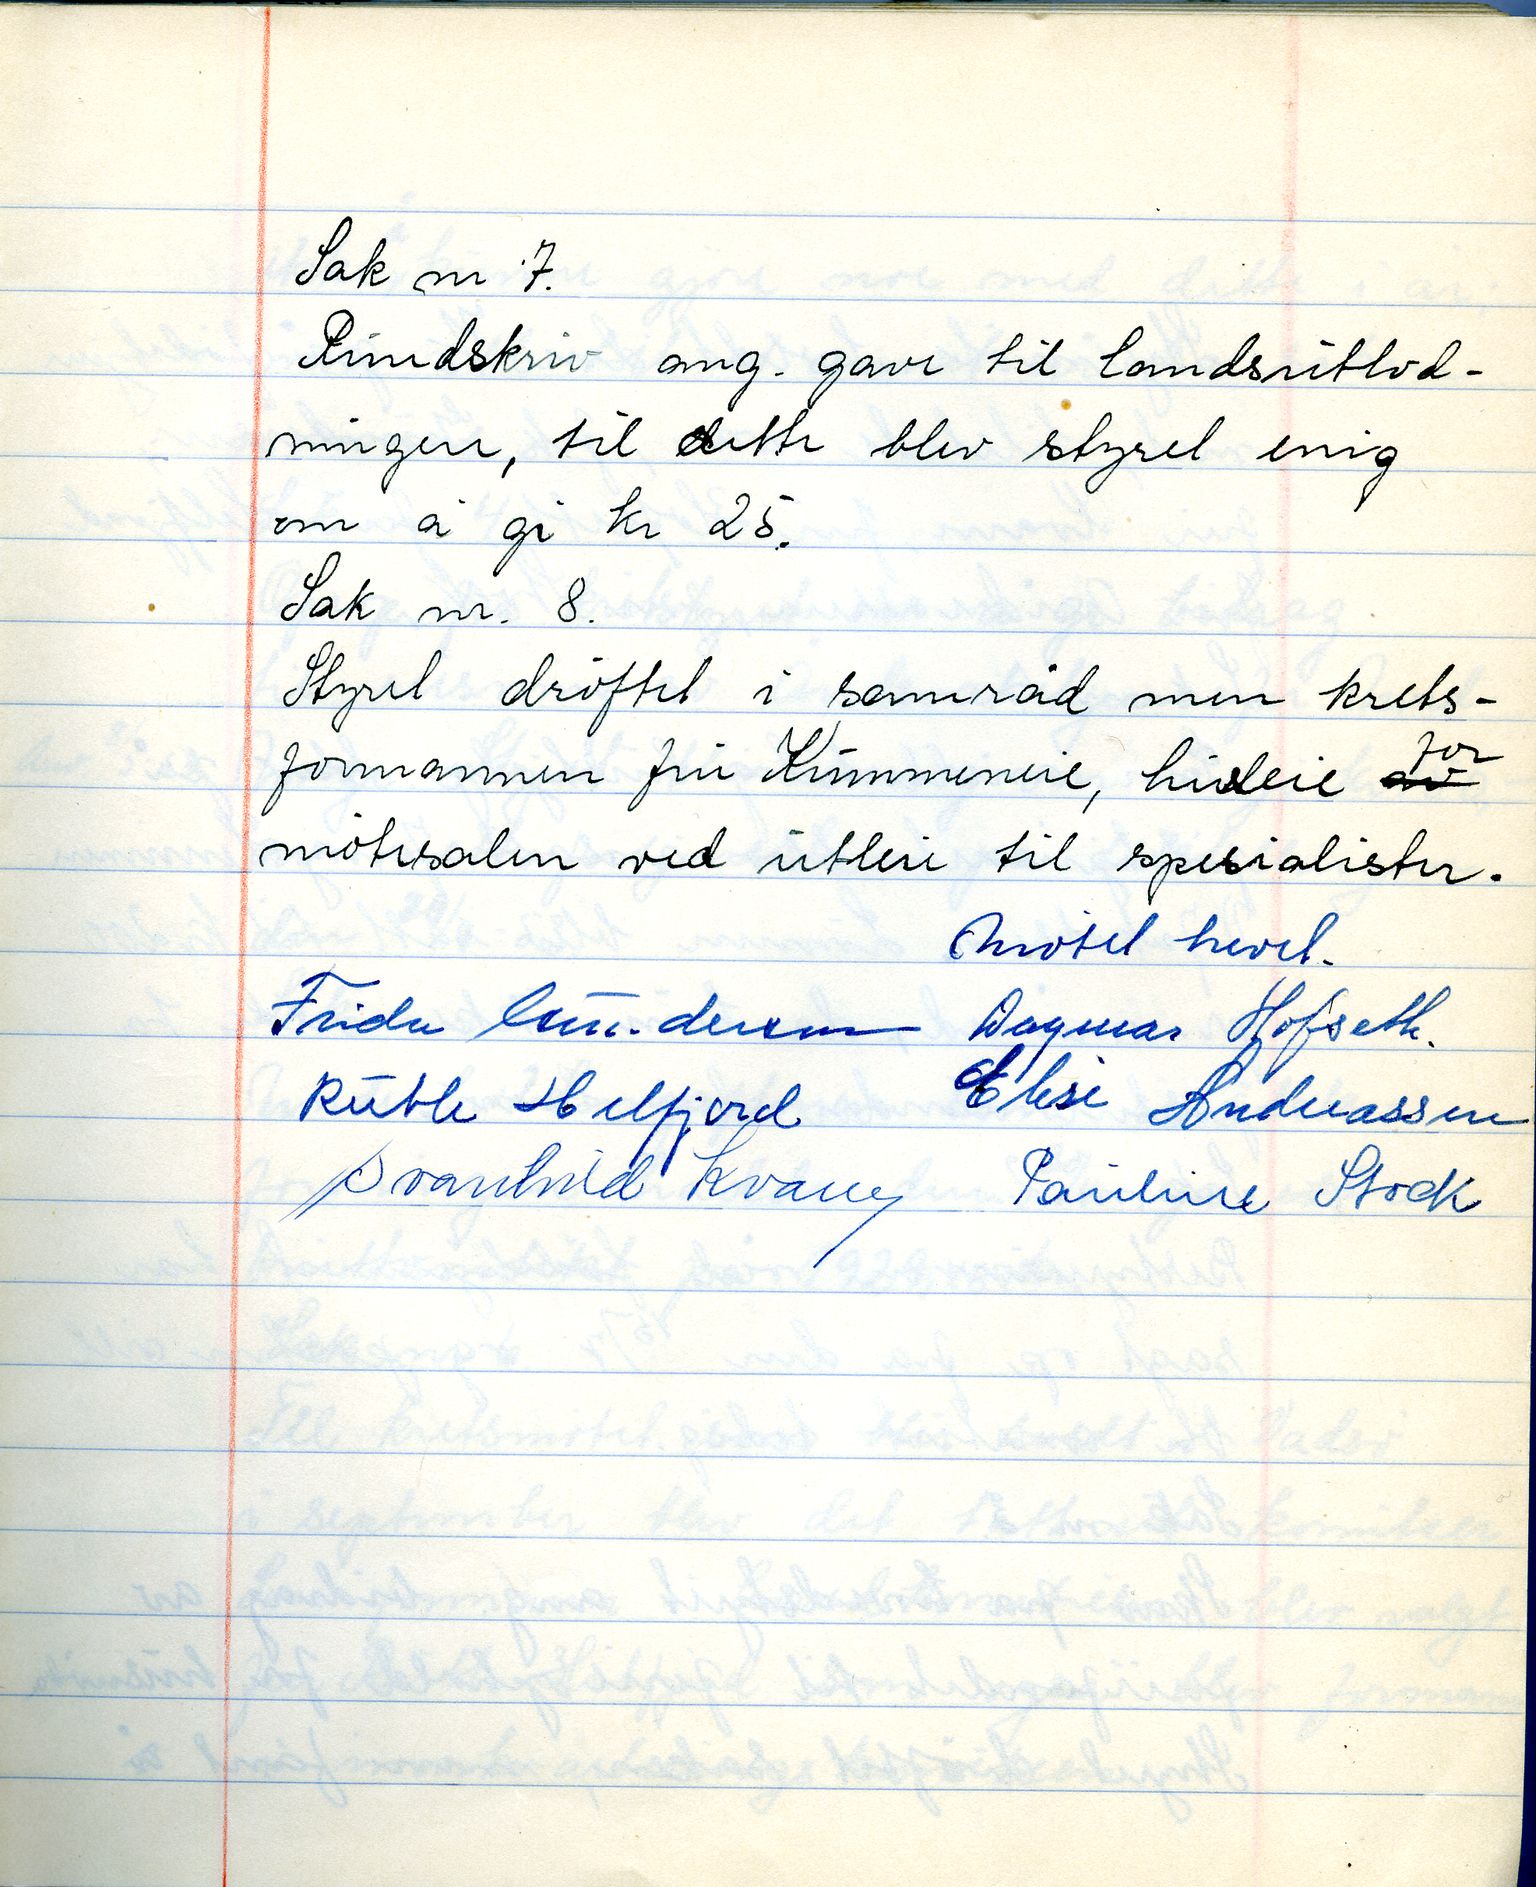 Sak nr 7.
Rundskriv ang. gave til landsutlod-
ningen, til dette blev styret enig
om å gi kr 25.
Sak nr. 8.
Styret drøftet i samråd men krets-
formannen fru Kummeneie, husleie <del>av</del> for
møtesalen ved utleie til spesialister.
Møtet hevet.
Frida Dagmar Hofseth.
Ruth Helfjord Elise Andreassen
Svanhild Kvaug Pauline Stock